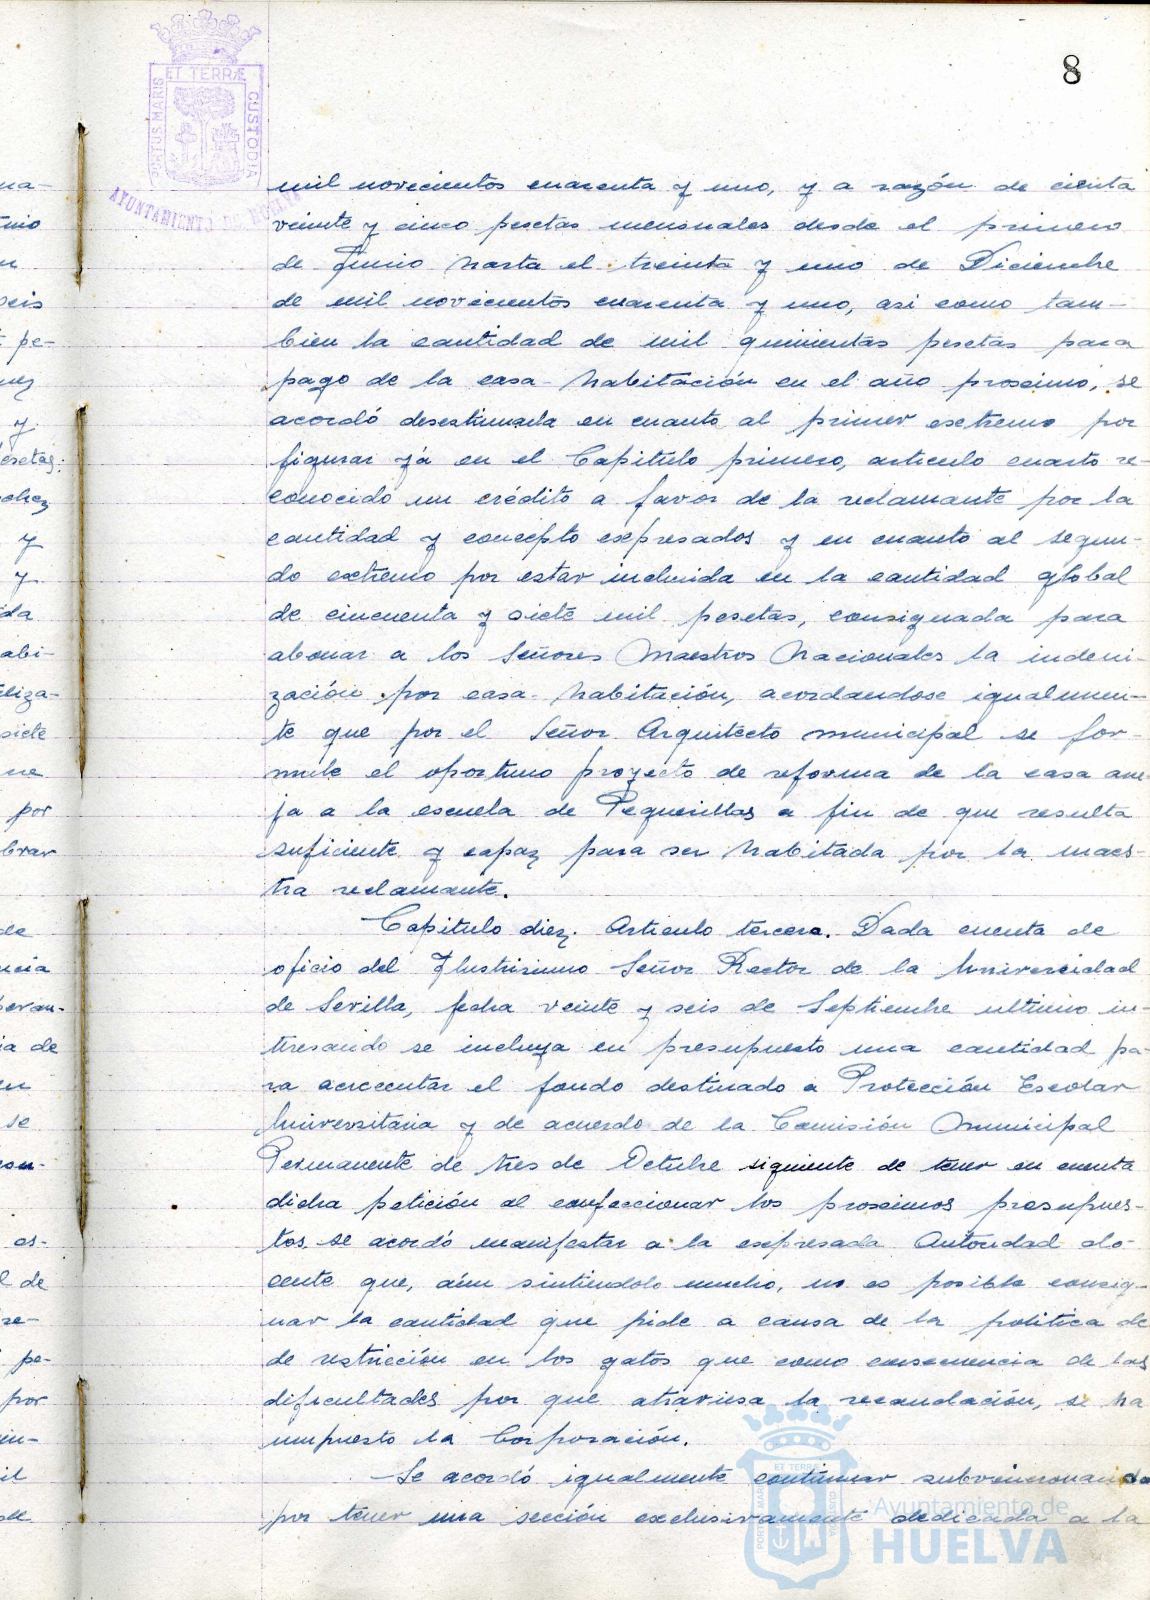 8
ET TERRÆ
PORTUS MARIS
CUSTODIA
AYUNTAMIENTO DE HUELVA
mil novecientos cuarenta y uno, y a razón de cienta
veinte y cinco pesetas mensuales desde el primero
de Junio hasta el treinta y uno de Diciembre
de mil novecientos cuarenta y uno, asi como tam-
bien la cantidad de mil quinientas pesetas para
pago de la casa-habitación en el año proximo, se
acordó desestimarla en cuanto al primer extremo por
figurar yá en el Capitulo primero, articulo cuarto re-
conocido un crédito a favor de la reclamante por la
cantidad y concepto expresados y en cuanto al segun-
do extremo por estar incluida en la cantidad global
de cincuenta y siete mil pesetas, consignada para
abonar a los Señores Maestros Nacionales la indeni-
zación por casa-habitación, acordandose igualmen-
te que por el Señor Arquitecto municipal se for-
mule el oportuno proyecto de reforma de la casa ane-
ja a la escuela de Pequerillas a fin de que resulta
suficiente y capaz para ser habitada por la maes-
tra reclamante.
Capitulo diez. Articulo tercera. Dada cuenta de
oficio del Ilustrisimo Señor Rector de la Universidad
de Sevilla, fecha veinte y seis de Septiembre ultimo in-
tresando se incluya en presupuesto una cantidad pa-
ra acrecentar el fondo destinado a Protección Escolar
Universitaria y de acuerdo de la Comisión Municipal
Permanente de tres de Octubre siguiente de tener en cuenta
dicha petición al confeccionar los proximos presupues-
tos, se acordó manifestar a la expresada Autoridad do-
cente que, aún sintiendolo mucho, no es posible consig-
nar la cantidad que pide a causa de la politica de
de restricción en los gatos que como consecuencia de las
dificultades por que atraviesa la recaudación, se ha
impuesto la Corporación.
Se acordó igualmente continuar subvencionando
por tener una sección exclusivamente dedicada a la
Ayuntamiento de
HUELVA